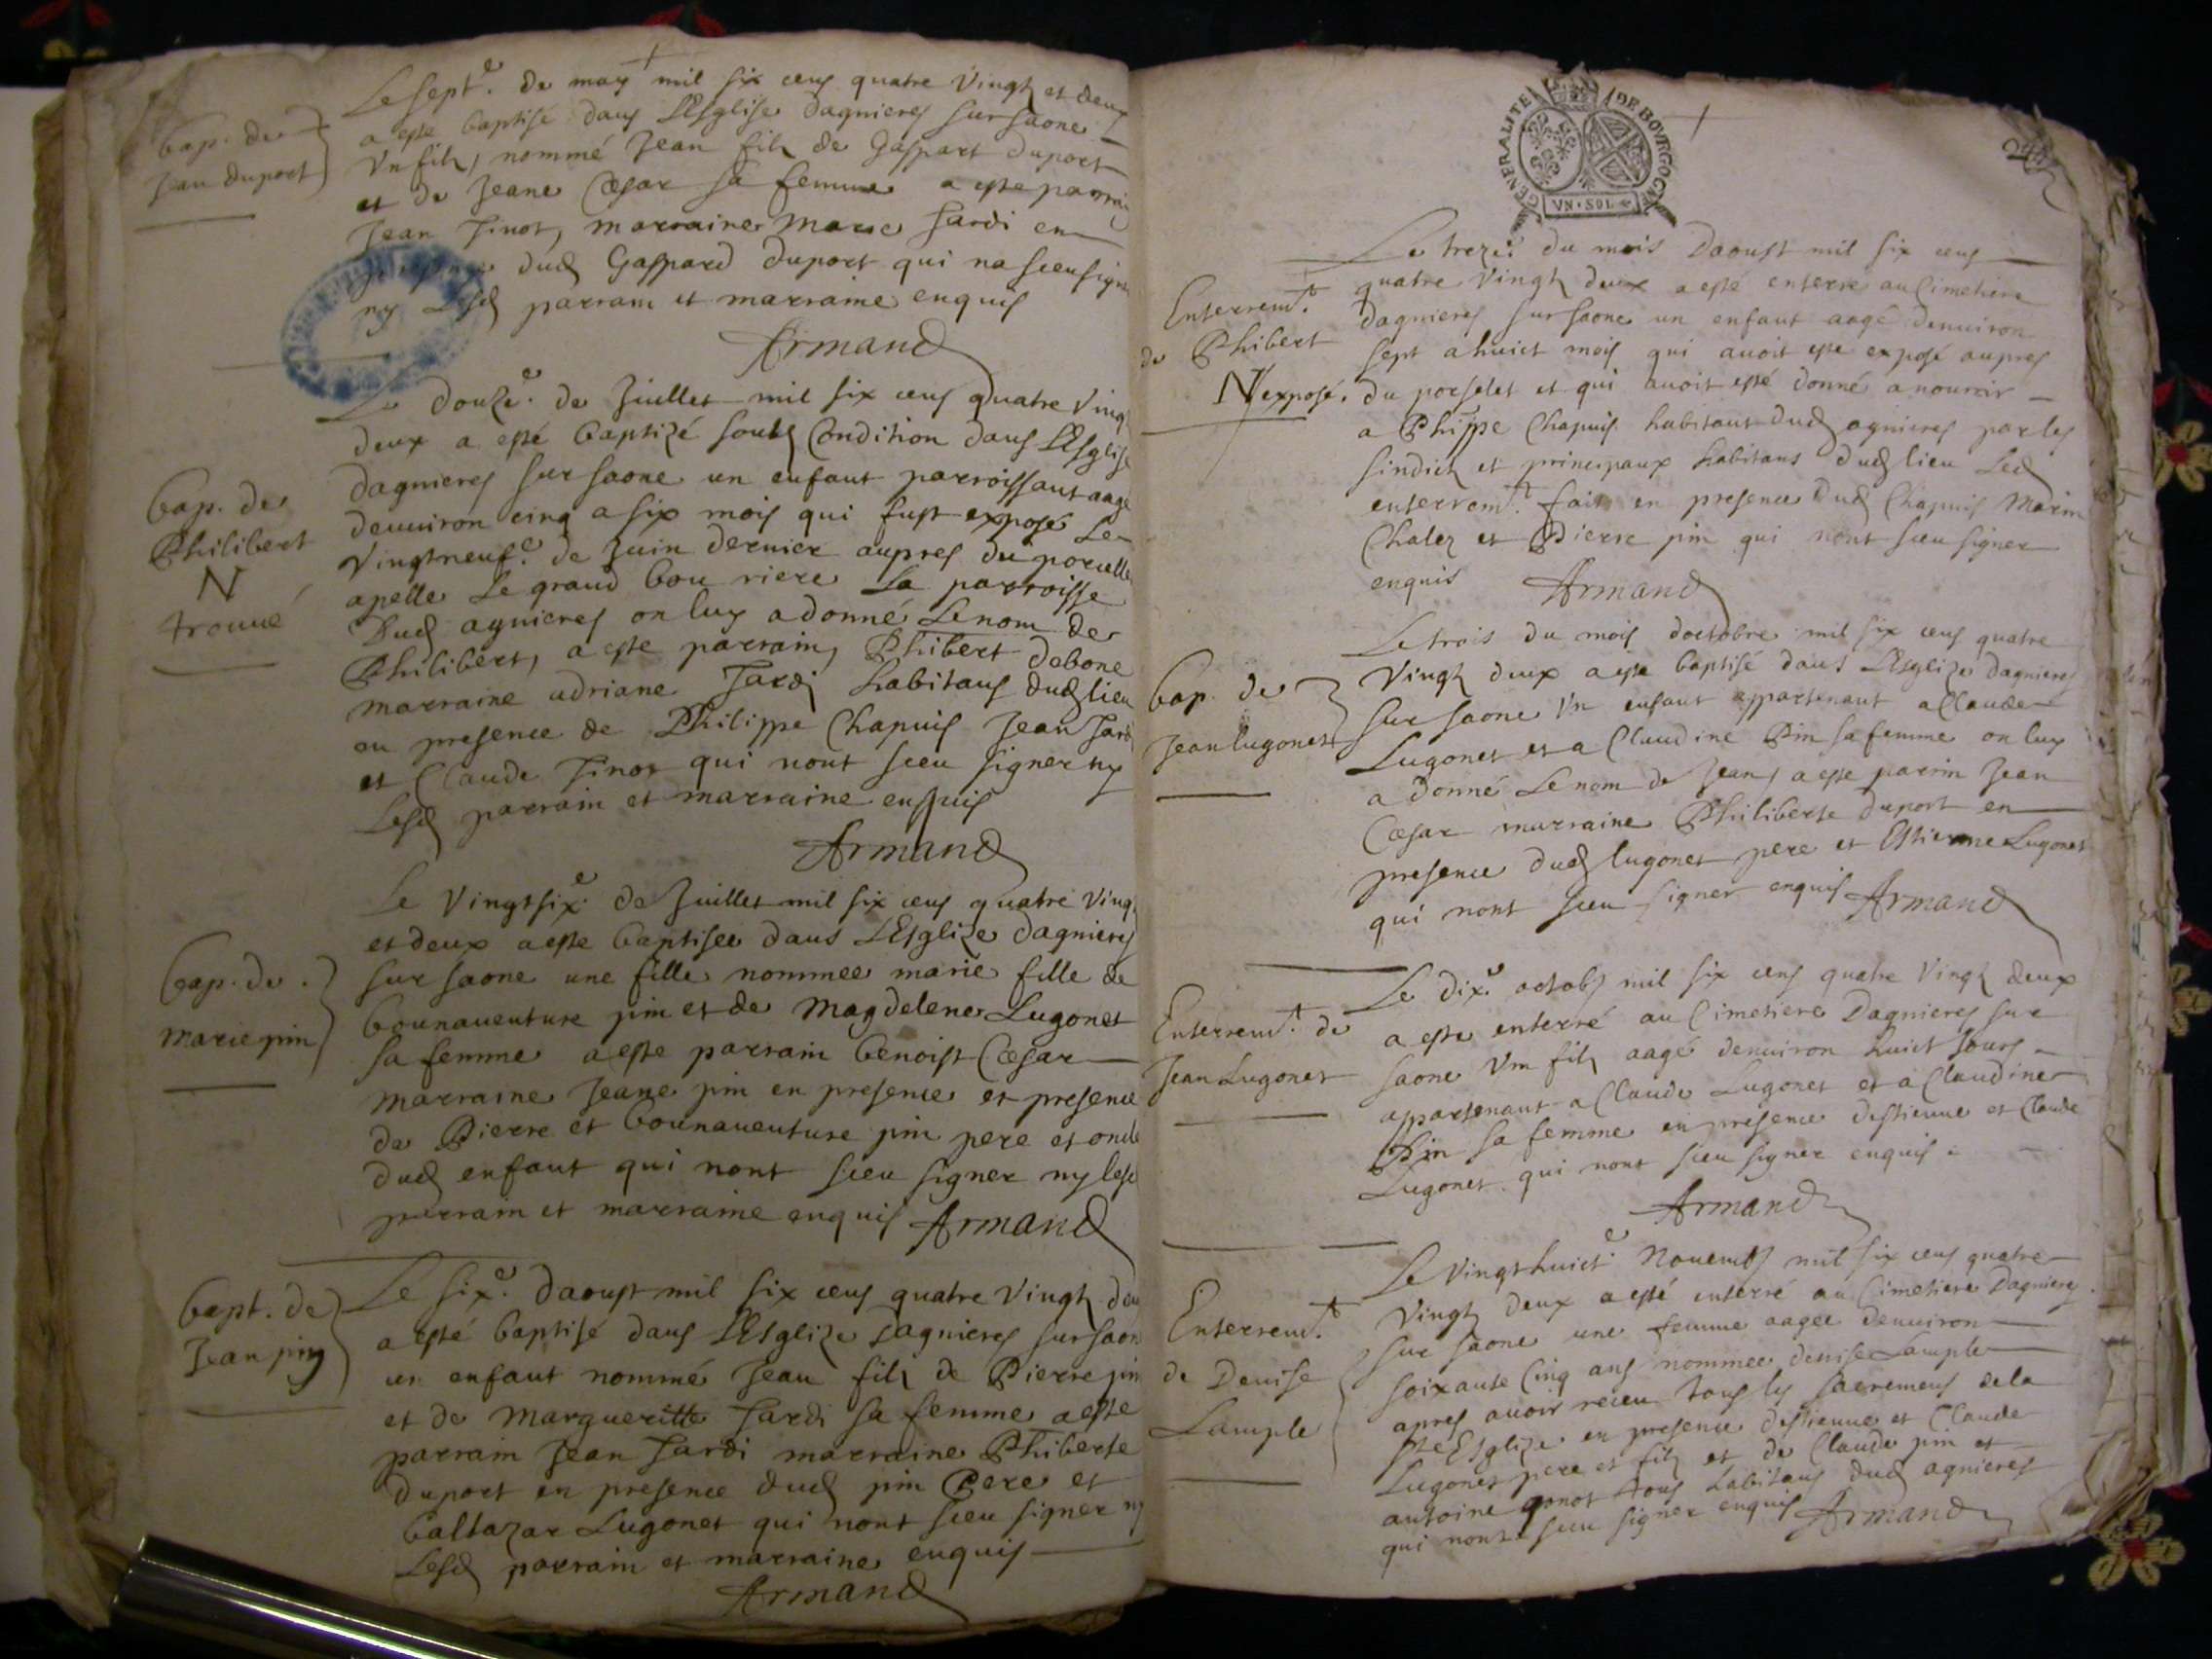 Bap. de
Jean duport
Le septe. de may mil six cens quatre vingt et deux
a este baptisé dans L'Esglise dagnieres sur saone
Un filz, nommé Jean filz de Gaspart duport
et de Jeane Cesar sa femme a este parrain
Jean Tinot, marraine Marie Jardi en
presence dud Gaspard duport qui na sceu signer
ny Lesd parrain et marraine enquis
Armand
Bap. de
Philibert
N
trouué
Le douze. de Juillet mil six cens quatre vingt
deux a esté baptizé soubz Condition dans L'Esglise
dagnieres sur saone un enfant parroissant aagé
denuiron cinq a six mois qui fust exposé Le
vingtneufe. de Juin dernier aupres du porcelle
apelle Le grand bou riere La parroisse
Dud agnieres on luy a donné Le nom de
Philibert, a este parrain, Phibert debone
marraine adriane Jardi habitans dud lieu
en presence de Philippe Chapuis Jean Jardi
et Claude Tinot qui nont sceu signer ny
Lesd parrain et marraine enquis
Armand
Bap. de.
Marie pin
Le vingtsixe. de Juillet mil six cens quatre vingt
et deux a este baptisee dans L'Esglize dagnieres
sur saone une fille nommee marie fille de
bounauenture pin et de Magdelene Lugonet
sa femme a este parrain benoist Cesar
marraine Jeane pin en presence et presence
de Pierre et bounauenture pin pere et oncle
dud enfant qui nont sceu signer ny lesd
parrain et marraine enquis Armand
Bapt. de
Jean pin
Le sixe. daoust mil six cens quatre vingt deux
a esté baptisé dans L'Esglize dagnieres sur saone
un enfant nommé Jean filz de Pierre pin
et de Margueritte Jardi sa femme a este
parrain Jean Jardi marraine Phiberte
duport en presence dud pin Pere et
baltazar Lugonet qui nont sceu signer ny
Lesd parrain et marraine enquis
Armand
GENERALITE DE BOVRGOGNE
VN·SOL
Enterremt.
de Phibert
N exposé.
Le treze. du mois Daoust mil six cens
quatre vingt deux a esté enterré au Cimetiere
dagnieres sur saone un enfant aagé denuiron
sept a huict mois qui auoit este exposé aupres
du porselet et qui auoit esté donné a nourrir
a Phippe Chapuis habitant dud agnieres par les
sindicz et principaux habitans dud lieu Led
enterremt. fait en presence dud Chapuis Marin
Chalez et Pierre pin qui nont sceu signer
enquis Armand
Bap. de
Jean lugonet
Le trois du mois doctobre mil six cens quatre
vingt deux a este baptisé dans L'Esglize dagnieres
sur saone Un enfant appartenant a Claude
Lugonet et a Claudine Pin sa femme on luy
a donné Le nom de Jean, a este parrin Jean
Cesar marraine Philiberte duport en
presence dud lugonet pere et Estienne Lugonet
qui nont sceu signer enquis Armand
Enterremt. de
Jean Lugonet
Le dixe. octob mil six cens quatre vingt deux
a este enterré au Cimetiere Dagnieres sur
saone Vn filz aagé denuiron huict Jours
appartenant a Claude Lugonet et a Claudine
Pin sa femme en presence destienne et Claude
Lugonet qui nont sceu signer enquis.
Armand
Enterremt.
de Denise
Lample
Le vingthuicte. Nouemb mil six cens quatre
vingt deux a esté enterré au Cimetiere Dagnieres
sur saone une femme aagee denuiron
soixante Cinq ans nommee denise Lample
apres auoir receu tous les sacremens de la
ste Esglize en presence destienne et Claude
Lugonet pere et filz et de Claude pin et
antoine gonot tous habitans dud agnieres
qui nont sceu signer enquis Armand